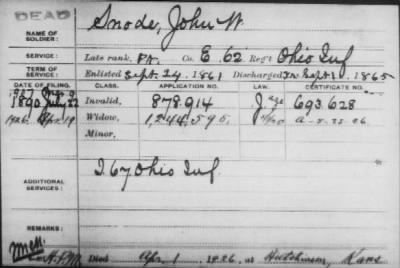 DEAD
NAME OF SOLDIER: Snode, John W.
SERVICE: Late rank, Pt. Co. E. 62 Reg't Ohio Inf
TERM OF SERVICE: Enlisted Sept. 24, 1861 Discharged Sept 1865
DATE OF FILING. CLASS. APPLICATION NO. LAW. CERTIFICATE NO.
1890 July 22 Invalid, 878.914 J age 693.628
1926. Apr. 19 Widow, 1,544,595 A-5-25-26
Minor,
ADDITIONAL SERVICES: I. 67 Ohio Inf
REMARKS:
Died Apr. 1, 1926, at Hutchinson, Kans